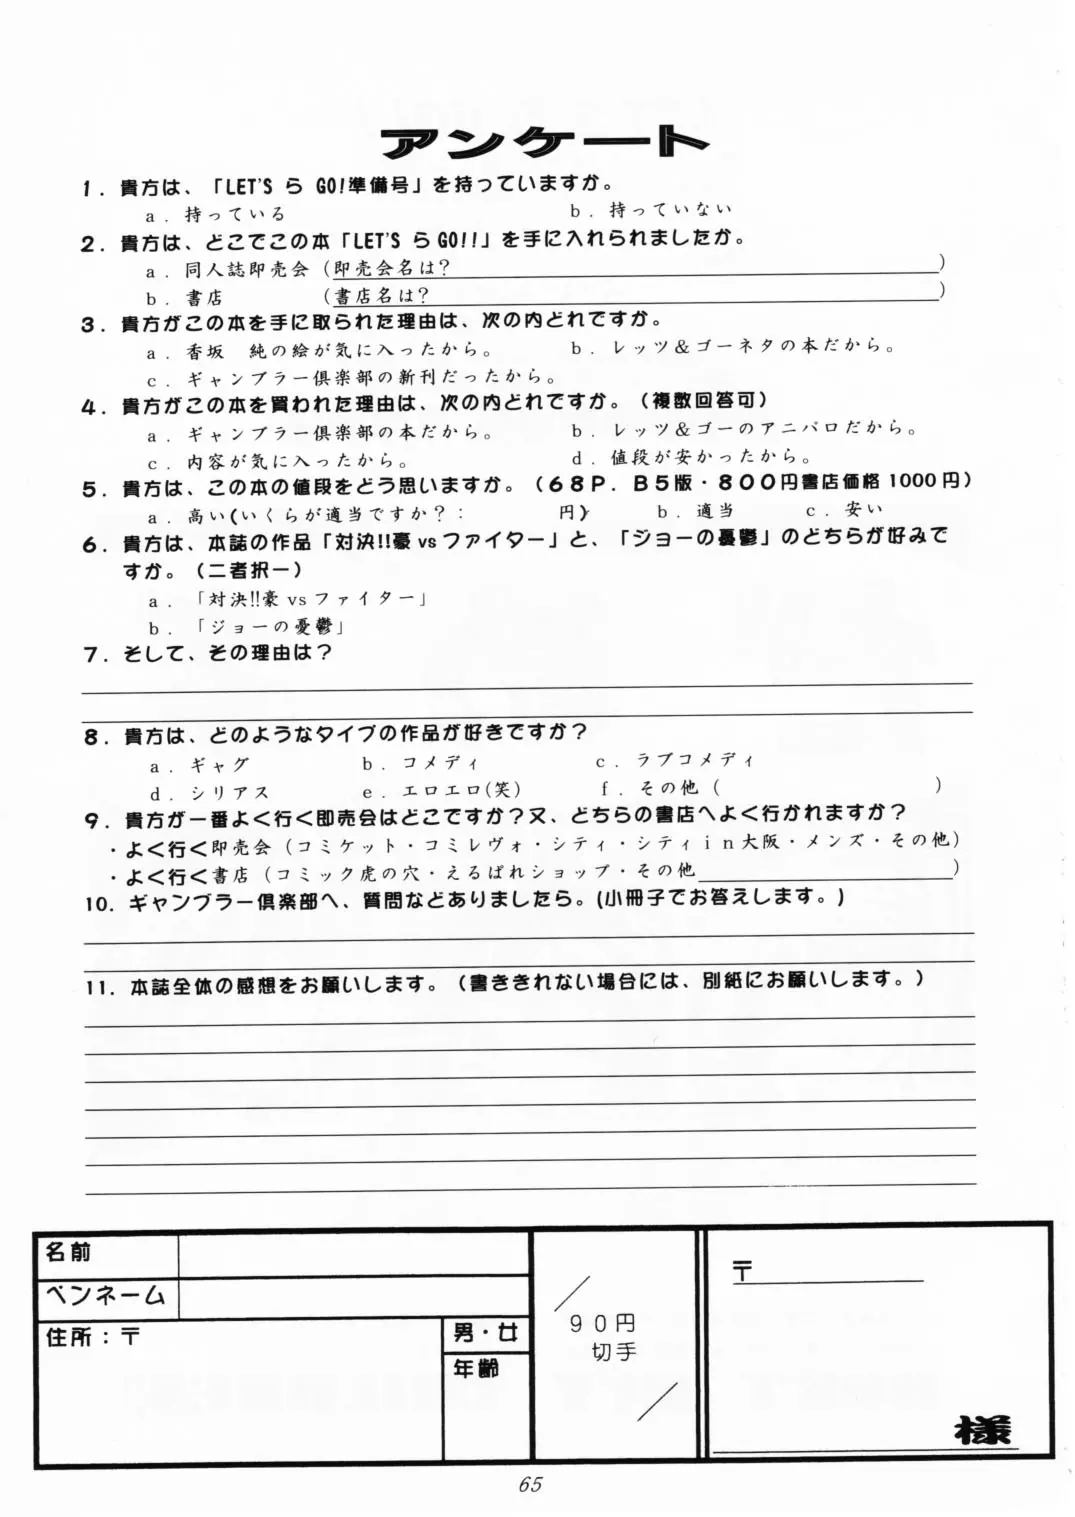 アンケート
1. 貴方は、「LET'S ら GO!準備号」を持っていますか。
a. 持っている b. 持っていない
2. 貴方は、どこでこの本「LET'S ら GO!!」を手に入れられましたか。
a. 同人誌即売会 (即売会名は? )
b. 書店 (書店名は? )
3. 貴方がこの本を手に取られた理由は、次の内どれですか。
a. 香坂 純の絵が気に入ったから。 b. レッツ&ゴーネタの本だから。
c. ギャンブラー倶楽部の新刊だったから。
4. 貴方がこの本を買われた理由は、次の内どれですか。(複数回答可)
a. ギャンブラー倶楽部の本だから。 b. レッツ&ゴーのアニパロだから。
c. 内容が気に入ったから。 d. 値段が安かったから。
5. 貴方は、この本の値段をどう思いますか。(68P. B5版・800円書店価格1000円)
a. 高い(いくらが適当ですか?: 円) b. 適当 c. 安い
6. 貴方は、本誌の作品「対決!!豪vsファイター」と、「ジョーの憂鬱」のどちらが好みで
すか。(二者択一)
a. 「対決!!豪vsファイター」
b. 「ジョーの憂鬱」
7. そして、その理由は?
8. 貴方は、どのようなタイプの作品が好きですか?
a. ギャグ b. コメディ c. ラブコメディ
d. シリアス e. エロエロ(笑) f. その他 ( )
9. 貴方が一番よく行く即売会はどこですか?又、どちらの書店へよく行かれますか?
・よく行く即売会 (コミケット・コミレヴォ・シティ・シティin大阪・メンズ・その他)
・よく行く書店 (コミック虎の穴・えるぱれショップ・その他 )
10. ギャンブラー倶楽部へ、質問などありましたら。(小冊子でお答えします。)
11. 本誌全体の感想をお願いします。(書ききれない場合には、別紙にお願いします。)
名前
ペンネーム
住所:〒
男・女
年齢
90円
切手
〒
様
65